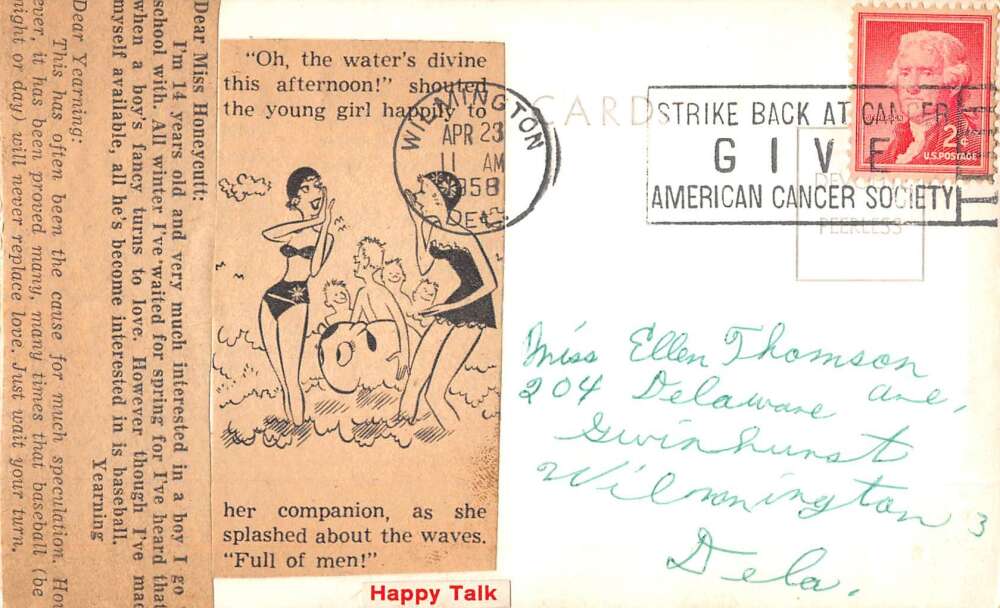 Dear Miss Honeycutt:
I'm 14 years old and very much interested in a boy I go
school with. All winter I've waited for spring for I've heard that
when a boy's fancy turns to love. However though I've mad
myself available, all he's become interested in is baseball.
Yearning
Dear Yearning:
This has often been the cause for much speculation. How
ever, it has been proved many, many times that baseball (be
night or day) will never replace love. Just wait your turn.
"Oh, the water's divine
this afternoon!" shouted
the young girl happily to
her companion, as she
splashed about the waves.
"Full of men!"
Happy Talk
WILMINGTON
APR 23
11 AM
1958
DEL.
CARD
STRIKE BACK AT CANCER
GIVE
AMERICAN CANCER SOCIETY
2¢
U.S. POSTAGE
PEERLESS
Miss Ellen Thomson
204 Delaware ave,
Gwinhurst
Wilmington 3
Dela.